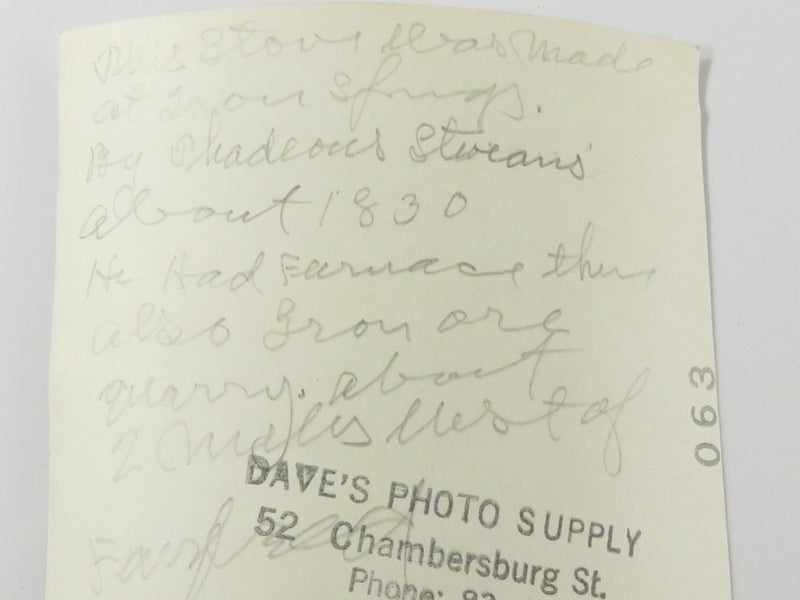 This Stove Was Made
at Iron Springs.
By Thadeous Stveans
about 1830
He Had Furnace there
also Iron ore
quarry. about
2 Myles West of
Fairfield
DAVE'S PHOTO SUPPLY
52 Chambersburg St.
Phone:
063